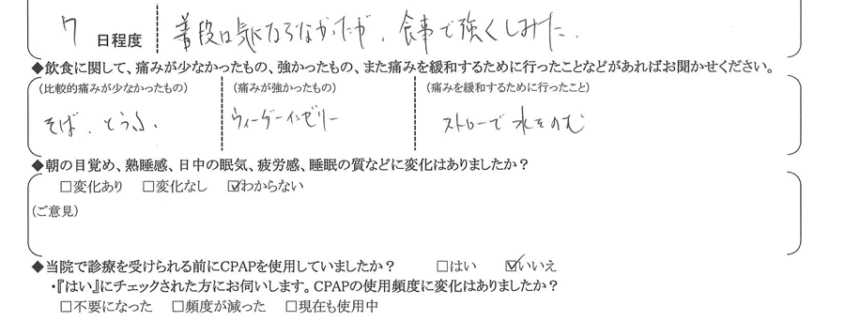 7 日程度 普段は気にならなかったが、食事で強くしみた.
◆飲食に関して、痛みが少なかったもの、強かったもの、また痛みを緩和するために行ったことなどがあればお聞かせください。
(比較的痛みが少なかったもの) (痛みが強かったもの) (痛みを緩和するために行ったこと)
そば、とうふ ウィーダーインゼリー ストローで水をのむ
◆朝の目覚め、熟睡感、日中の眠気、疲労感、睡眠の質などに変化はありましたか？
□変化あり □変化なし ☑わからない
(ご意見)
◆当院で診療を受けられる前にCPAPを使用していましたか？ □はい ☑いいえ
・『はい』にチェックされた方にお伺いします。CPAPの使用頻度に変化はありましたか？
□不要になった □頻度が減った □現在も使用中